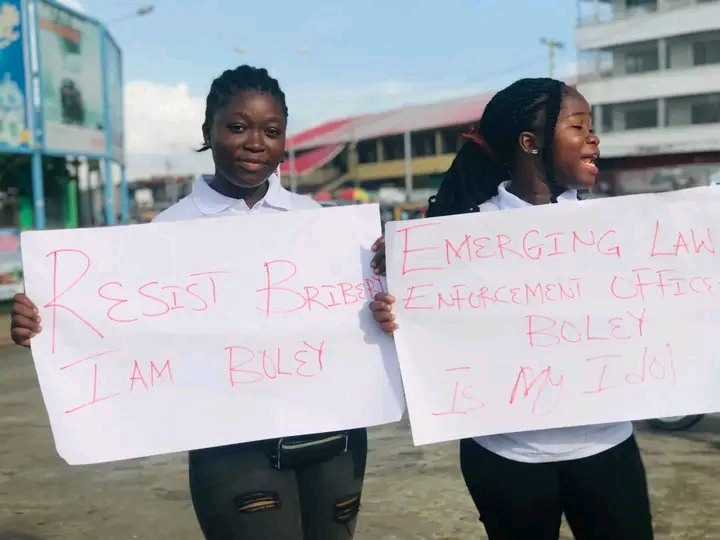 RESIST BRIBERY
I AM BOLEY
EMERGING LAW
ENFORCEMENT OFFICE
BOLEY
IS MY IDOL